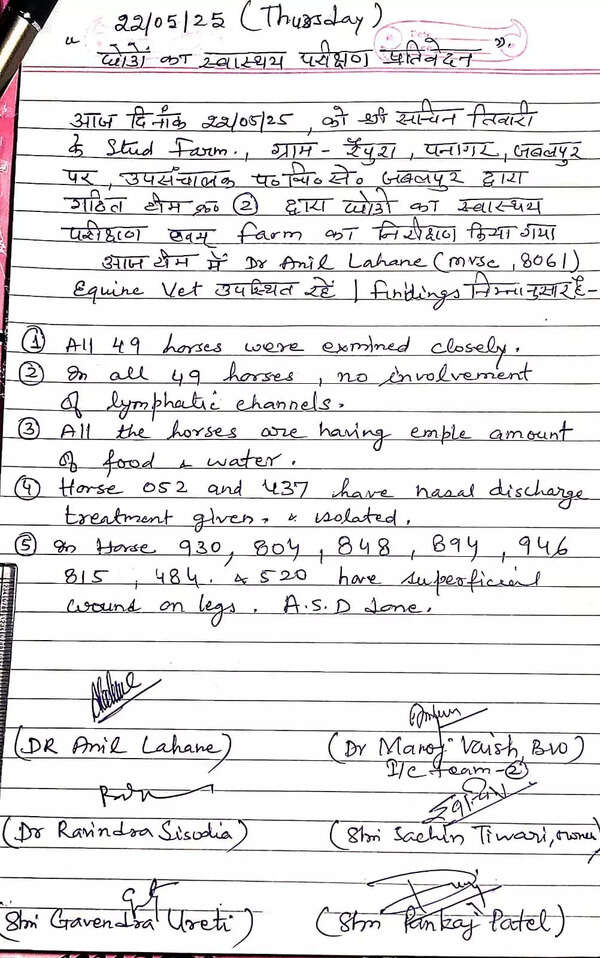 22/05/25 (Thursday)
"घोड़ों का स्वास्थय परीक्षण प्रतिवेदन".
आज दिनाँक 22/05/25, को श्री सचिन तिवारी
के Stud Farm., ग्राम - रैपुरा, पनागर, जबलपुर
पर, उपसंचालक प०चि०से० जबलपुर द्वारा
गठित टीम क्र० ② द्वारा घोड़ो का स्वास्थय
परीक्षण एवम् farm का निरीक्षण किया गया
आज टीम में Dr Anil Lahane (mvsc, 8061)
Equine Vet उपस्थित रहें | findings निम्नानुसार है-
① All 49 horses were exmined closely.
② In all 49 horses, no involvement
of lymphatic channels.
③ All the horses are having emple amount
of food & water.
④ Horse 052 and 437 have nasal discharge
treatment given. & isolated.
⑤ In Horse 930, 804, 848, 894, 946
815, 484. & 520 have superficial
wound on legs. A.S.D done.
(DR Anil Lahane)
(Dr Manoj Vaish, BVO)
I/c team-②
(Dr Ravindra Sisodia)
(Shri Sachin Tiwari, owner)
(Shri Gavendra Ureti)
(Shri Pankaj Patel)